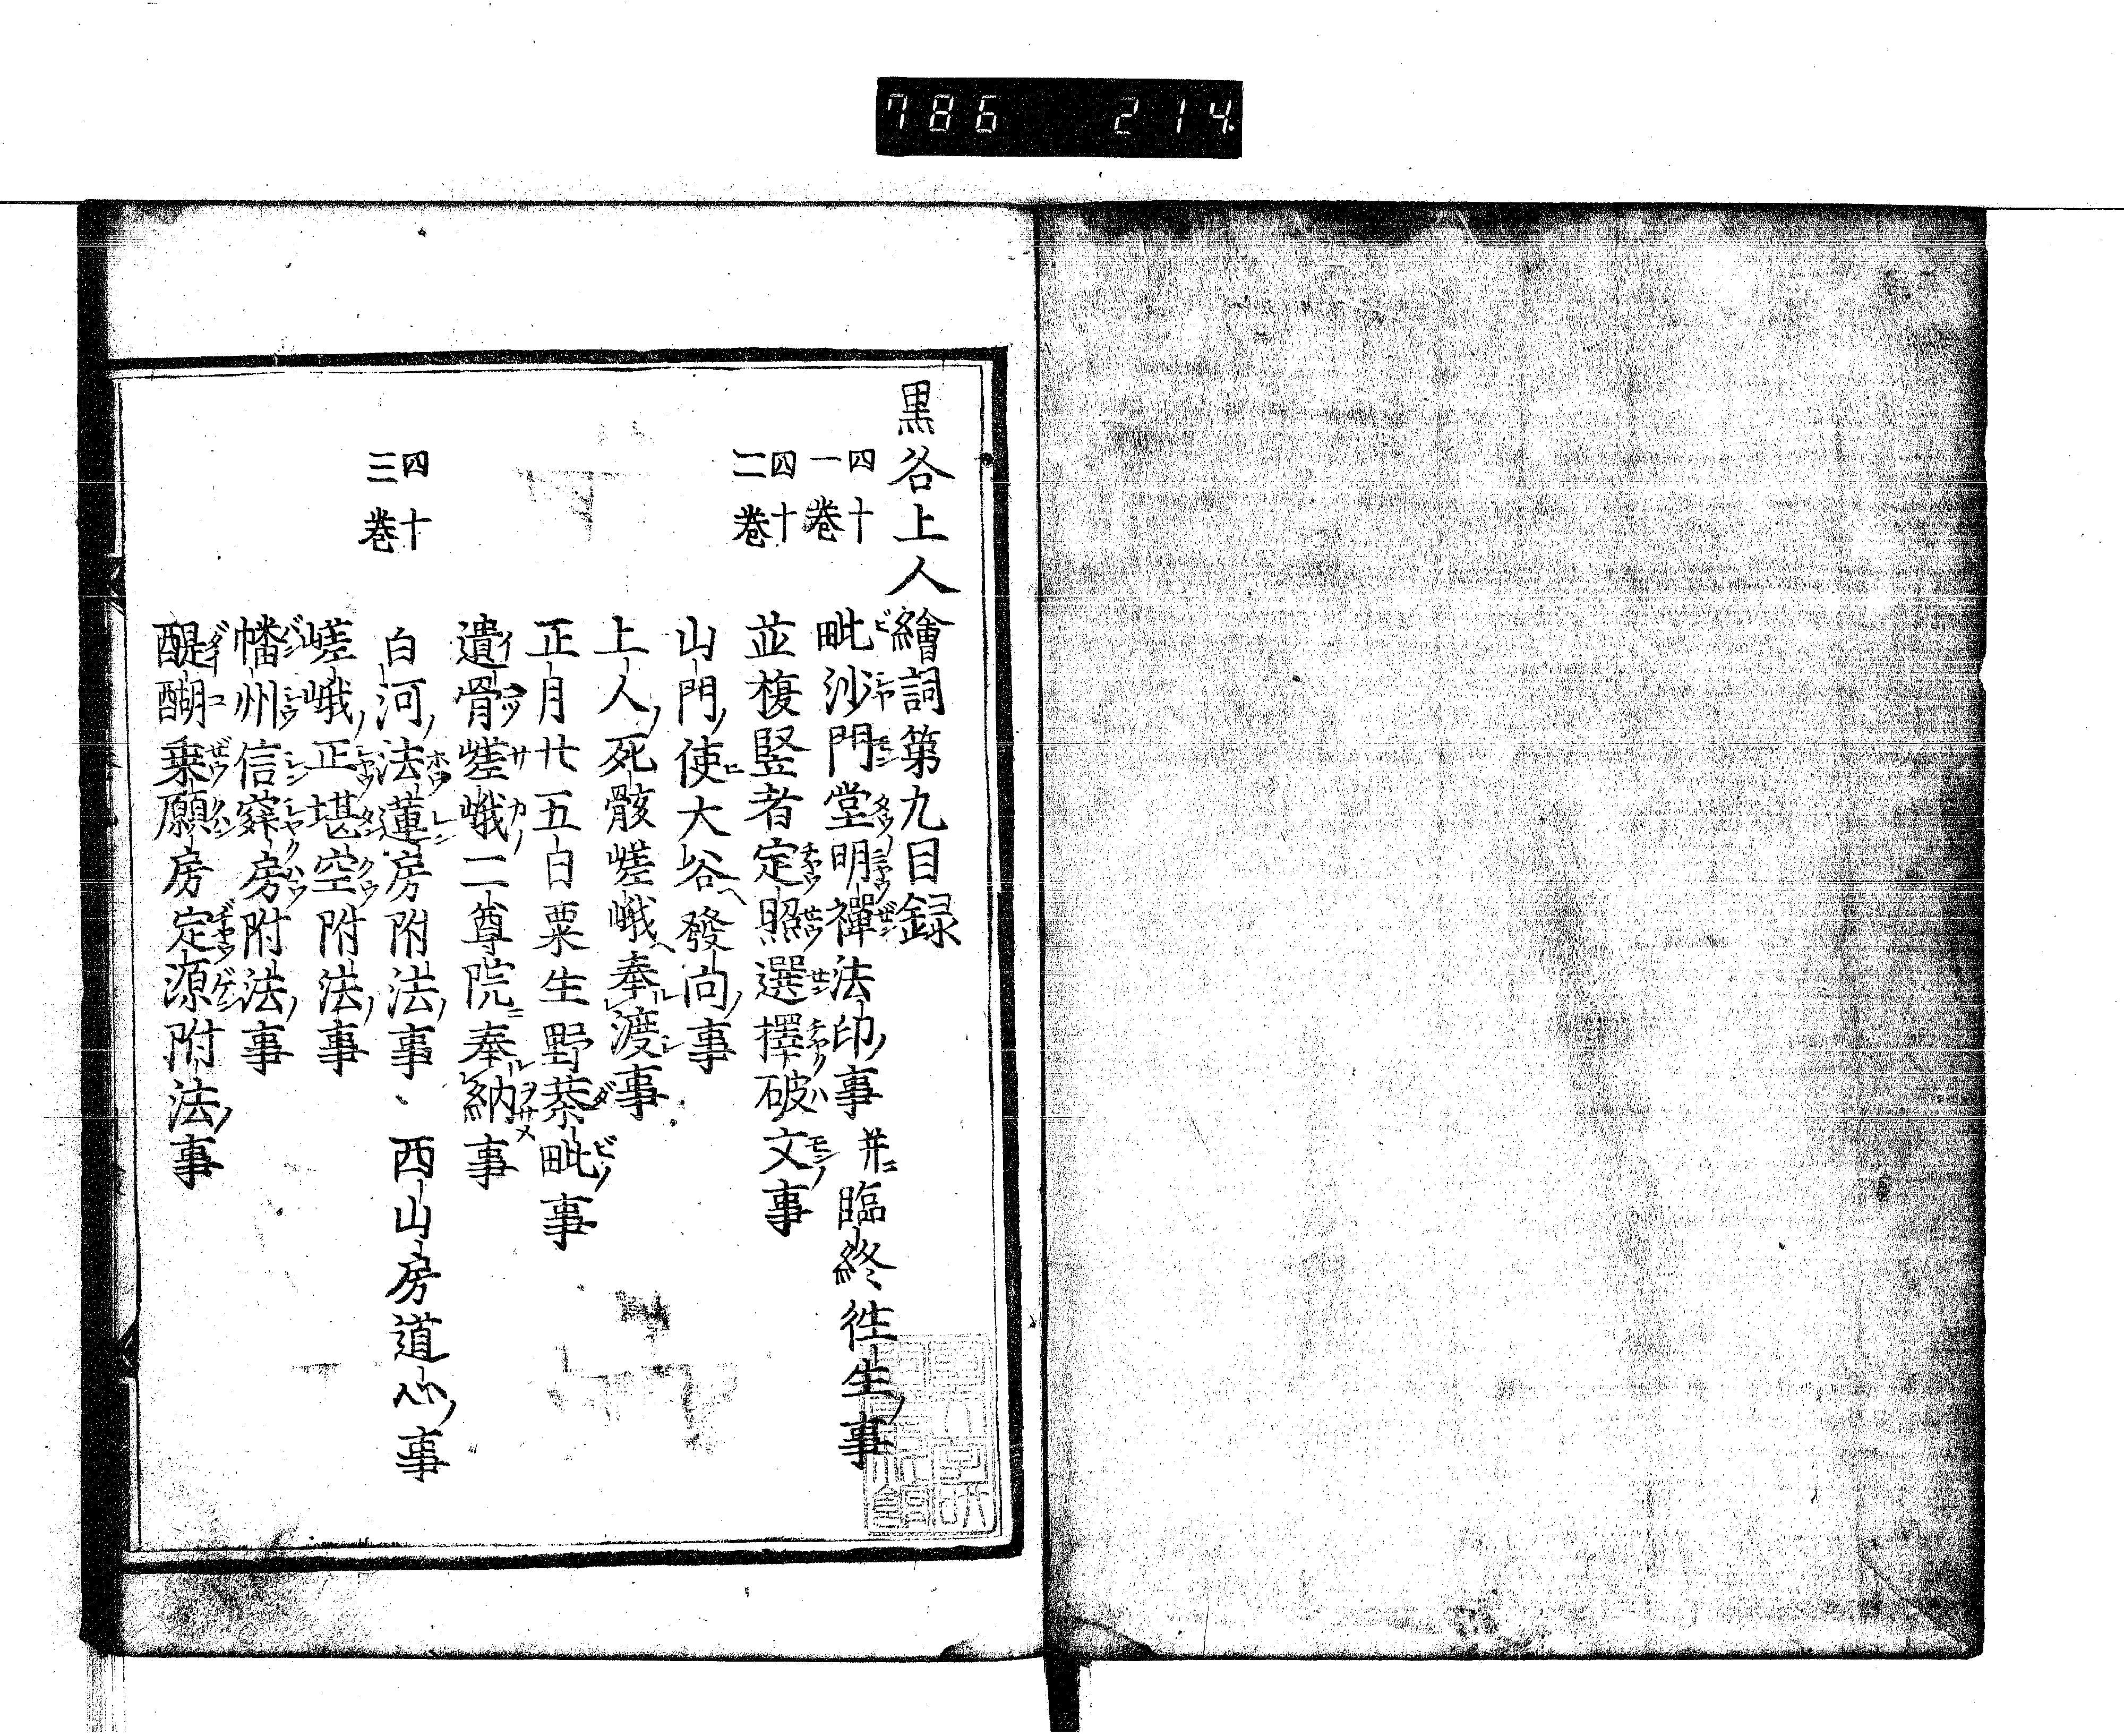 786 214
黒谷上人繪詞第九目録
四十一巻 毗沙門堂明禪法印ノ事 并ニ臨終徃生ノ事
四十二巻 並榎竪者定照選擇破文ノ事
山門ノ使大谷ヘ發向ノ事
上人ノ死骸嵯峨ヘ奉渡事
正月廿五日粟生野荼毗ノ事
遺骨嵯峨ノ二尊院ニ奉納事
四十三巻 白河ノ法蓮房附法ノ事、西山房道心ノ事
嵯峨ノ正堪空附法ノ事
幡州信寂房附法ノ事
醍醐乗願房定源附法ノ事